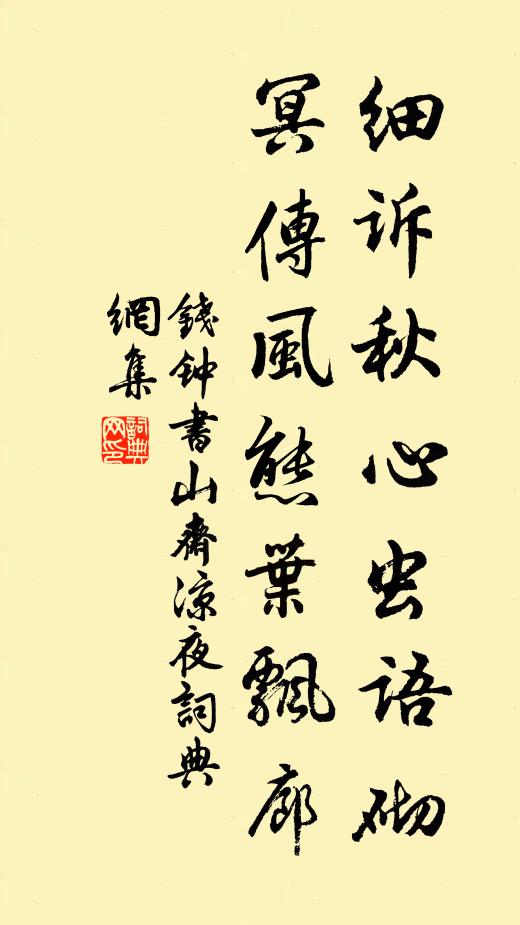 细诉秋心虫语砌
冥傳風態葉飄廊
錢钟書山齋凉夜詞典
網集
詞典
网印